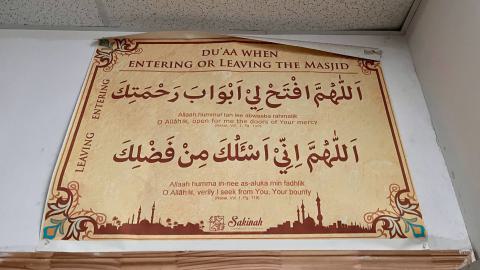 DU'AA WHEN
ENTERING OR LEAVING THE MASJID
ENTERING
اَللّٰهُمَّ افْتَحْ لِيْ اَبْوَابَ رَحْمَتِكَ
Allaah hummaf tah lee abwaaba rahmatik
O Allāh, open for me the doors of Your mercy
LEAVING
اَللّٰهُمَّ اِنِّيْ اَسْئَلُكَ مِنْ فَضْلِكَ
Allaah humma in-nee as-aluka min fadhlik
O Allāh, verily I seek from You, Your bounty
Sakinah